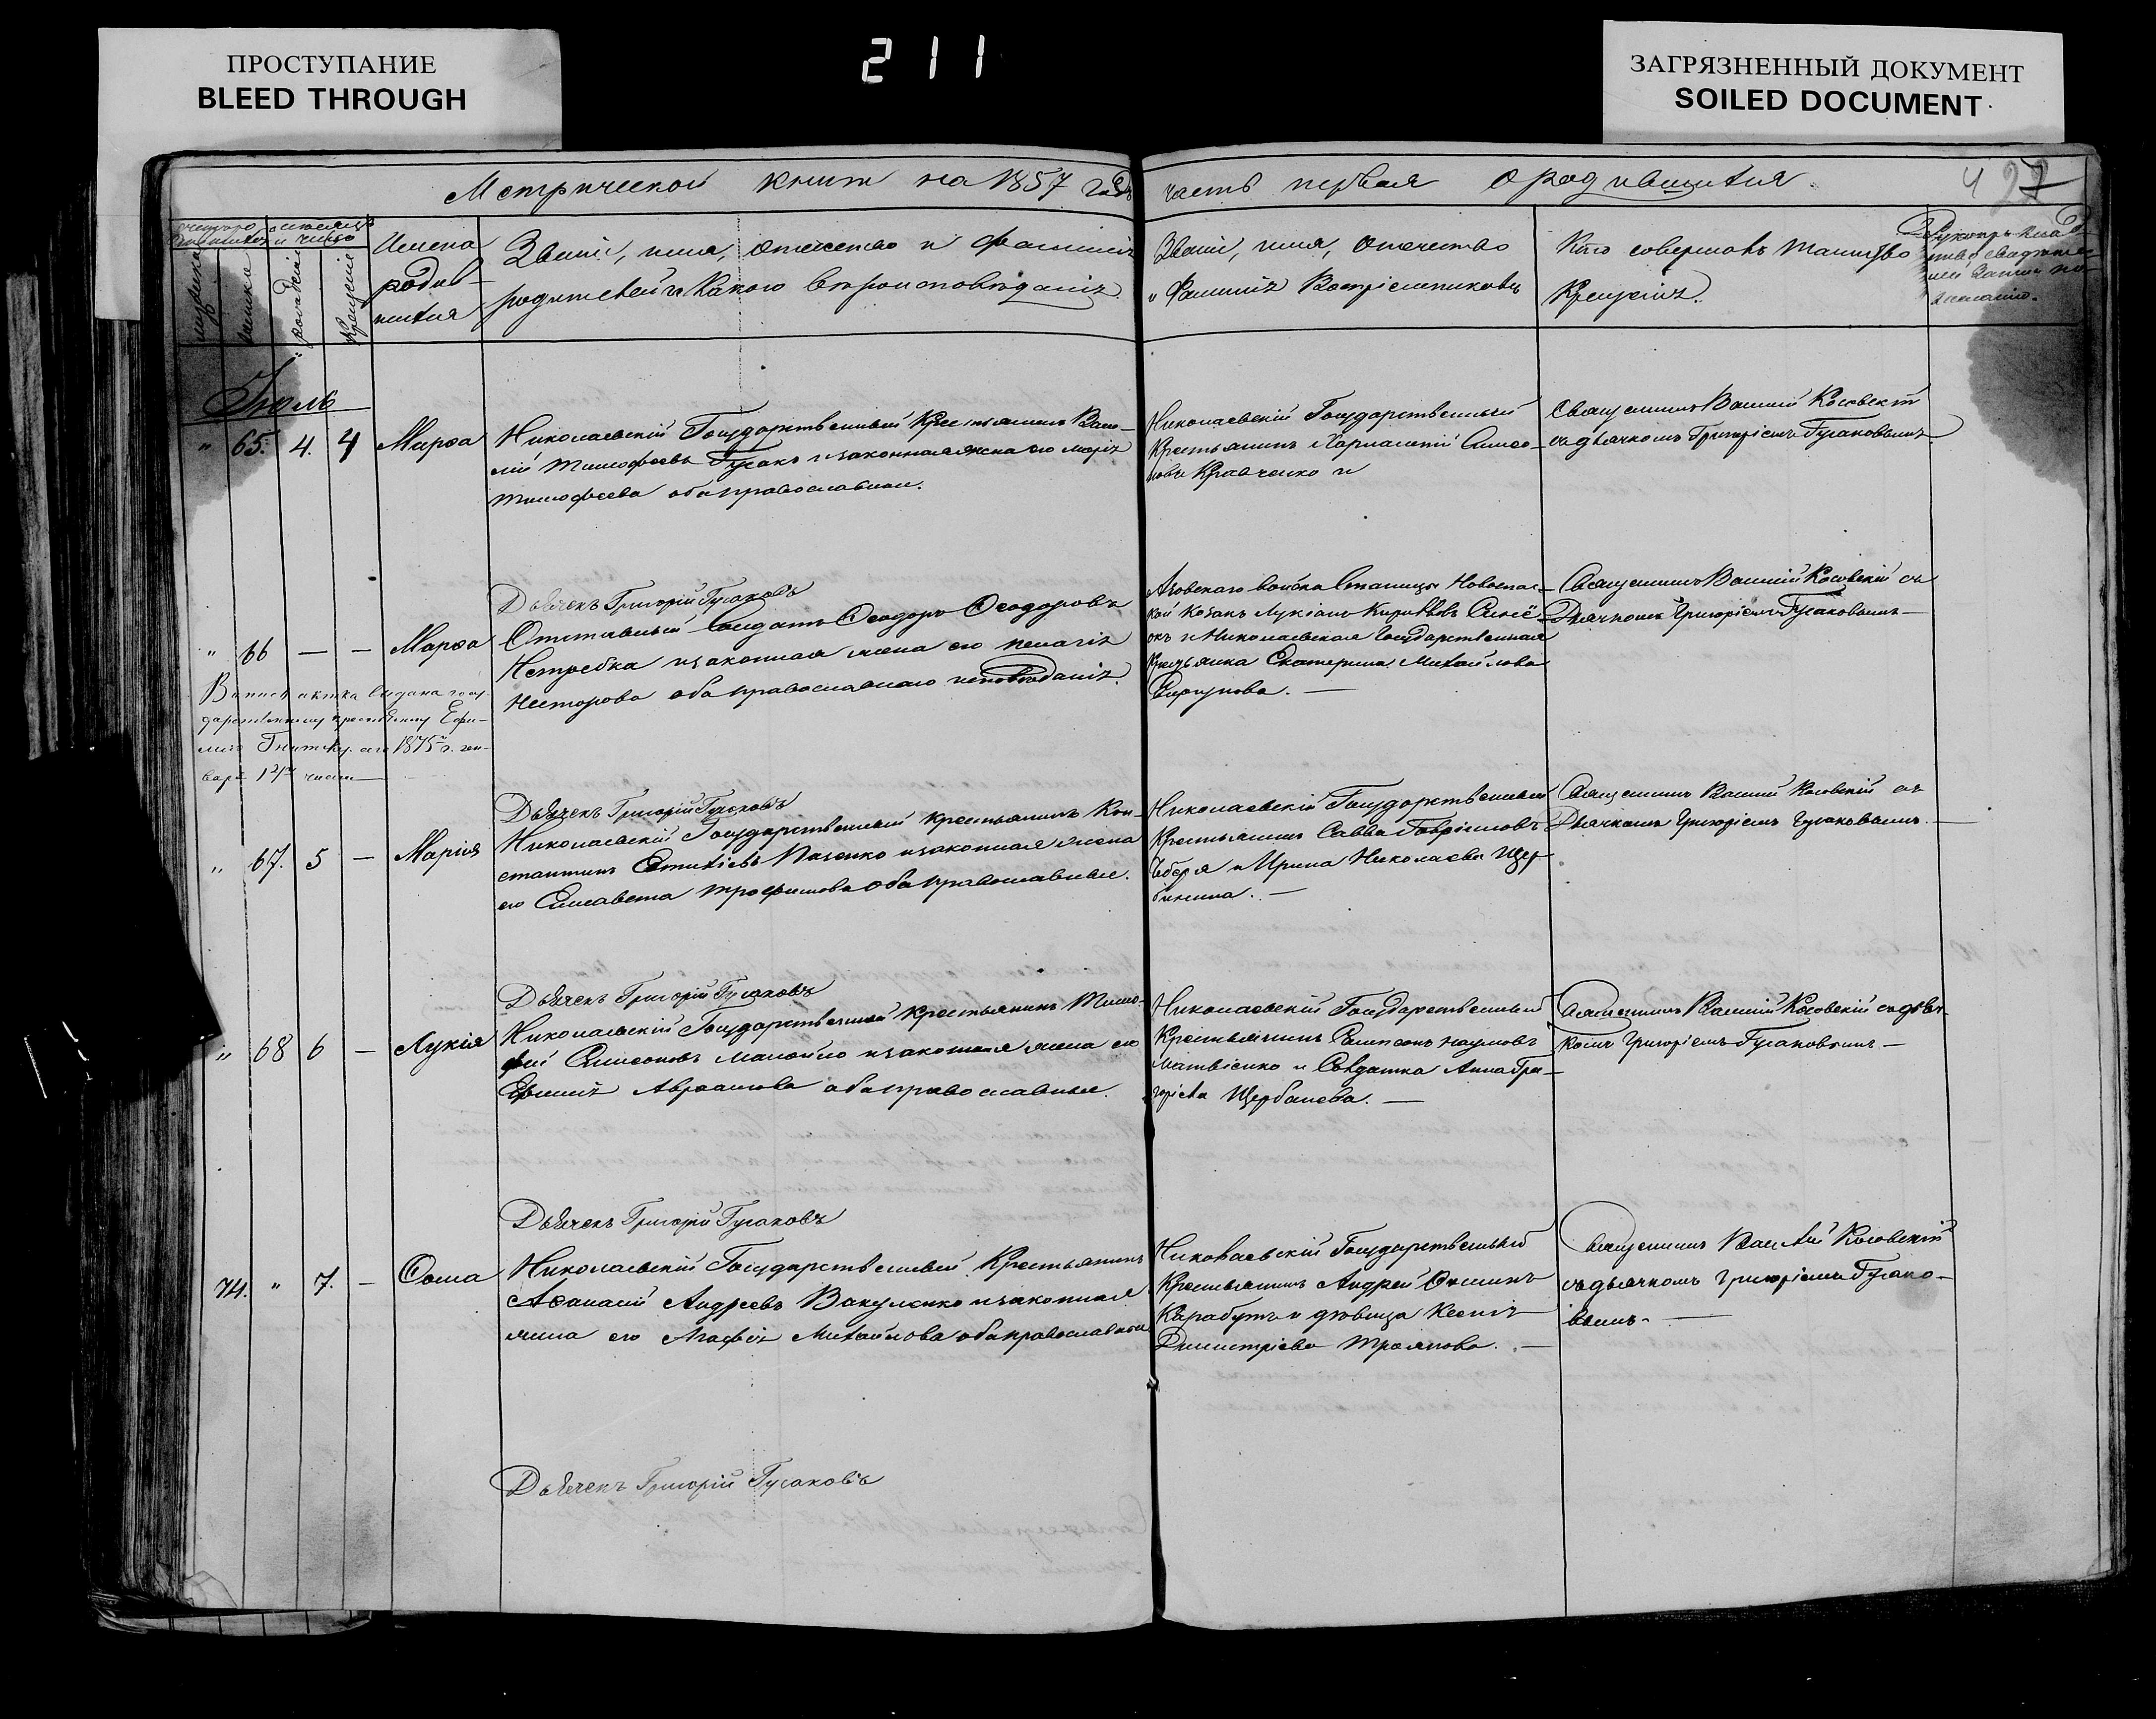 ПРОСТУПАНИЕ
BLEED THROUGH
211
ЗАГРЯЗНЕННЫЙ ДОКУМЕНТ
SOILED DOCUMENT
Метрической книги на 1857 годъ
часть первая о родившихся.
27
Имена
родив-
шихся
Званіе, имя, отчество и фамилія
родителей и какого вѣроисповѣданія.
Званіе, имя, отечество
и Фамилія Воспріемниковъ
Кто совершалъ таинство
Крещенія.
Іюль
" 65. 4. 4 Марѳа
Николаевскій Государственный Крестьянинъ Васи-
лій Тимофеевъ Гусакъ и законная жена его Марія
Тимофеева оба православные.
Николаевскій Государственный
Крестьянинъ Харлампій Симео-
новъ Кравченко и
Священникъ Василій Косовскій
съ дьячкомъ Григоріемъ Гусаковымъ
Дьячекъ Григорій Гусаковъ
" 66 — — Марѳа
Отставный Солдатъ Ѳеодоръ Ѳеодоровъ
Нетребка и законная жена его Пелагія
Несторова оба православнаго исповѣданія.
Азовскаго войска Станицы Новоспас-
кой Козакъ Лукіанъ Кириловъ
и Николаевская Государственная
Екатерина Михайлова
Священникъ Василій Косовскій съ
Дьячкомъ Григоріемъ Гусаковымъ —
выдана госу-
дарственному крестьянину Ефи-
1875 г. ген-
варя 12го числа
Дьячекъ Григорій Гусаковъ
" 67. 5 — Марія
Николаевскій Государственный крестьянинъ Кон-
стантинъ и законная жена
его Елисавета Трофимова оба православные.
Николаевскій Государственный
Крестьянинъ Савва Гавріиловъ
и Ирина Николаева Щер-
бинина. —
Священникъ Василій Косовскій съ
Дьячкомъ Григоріемъ Гусаковымъ. —
Дьячекъ Григорій Гусаковъ
" 68 6 — Лукія
Николаевскій Государственный Крестьянинъ Тимо-
фей Симеоновъ и законная жена его
Евфимія Авраамова оба православные.
Николаевскій Государственный
Крестьянинъ Сампсонъ Наумовъ
Матвіенко и Солдатка Анна Гри-
горіева Щербакова. —
Священникъ Василій Косовскій съ дьяч-
комъ Григоріемъ Гусаковымъ —
Дьячекъ Григорій Гусаковъ
74. " 7. — Ѳома
Николаевскій Государственный Крестьянинъ
Аѳанасій Андреевъ Вакуленко и законная
жена его Агафія Михайлова оба православные
Николаевскій Государственный
Крестьянинъ Андрей
Карабутъ и дѣвица Ксенія
Димитріева Троянова. —
Священникъ Василій Косовскій
съ дьячкомъ Григоріемъ Гусако-
вымъ. —
Дьячекъ Григорій Гусаковъ